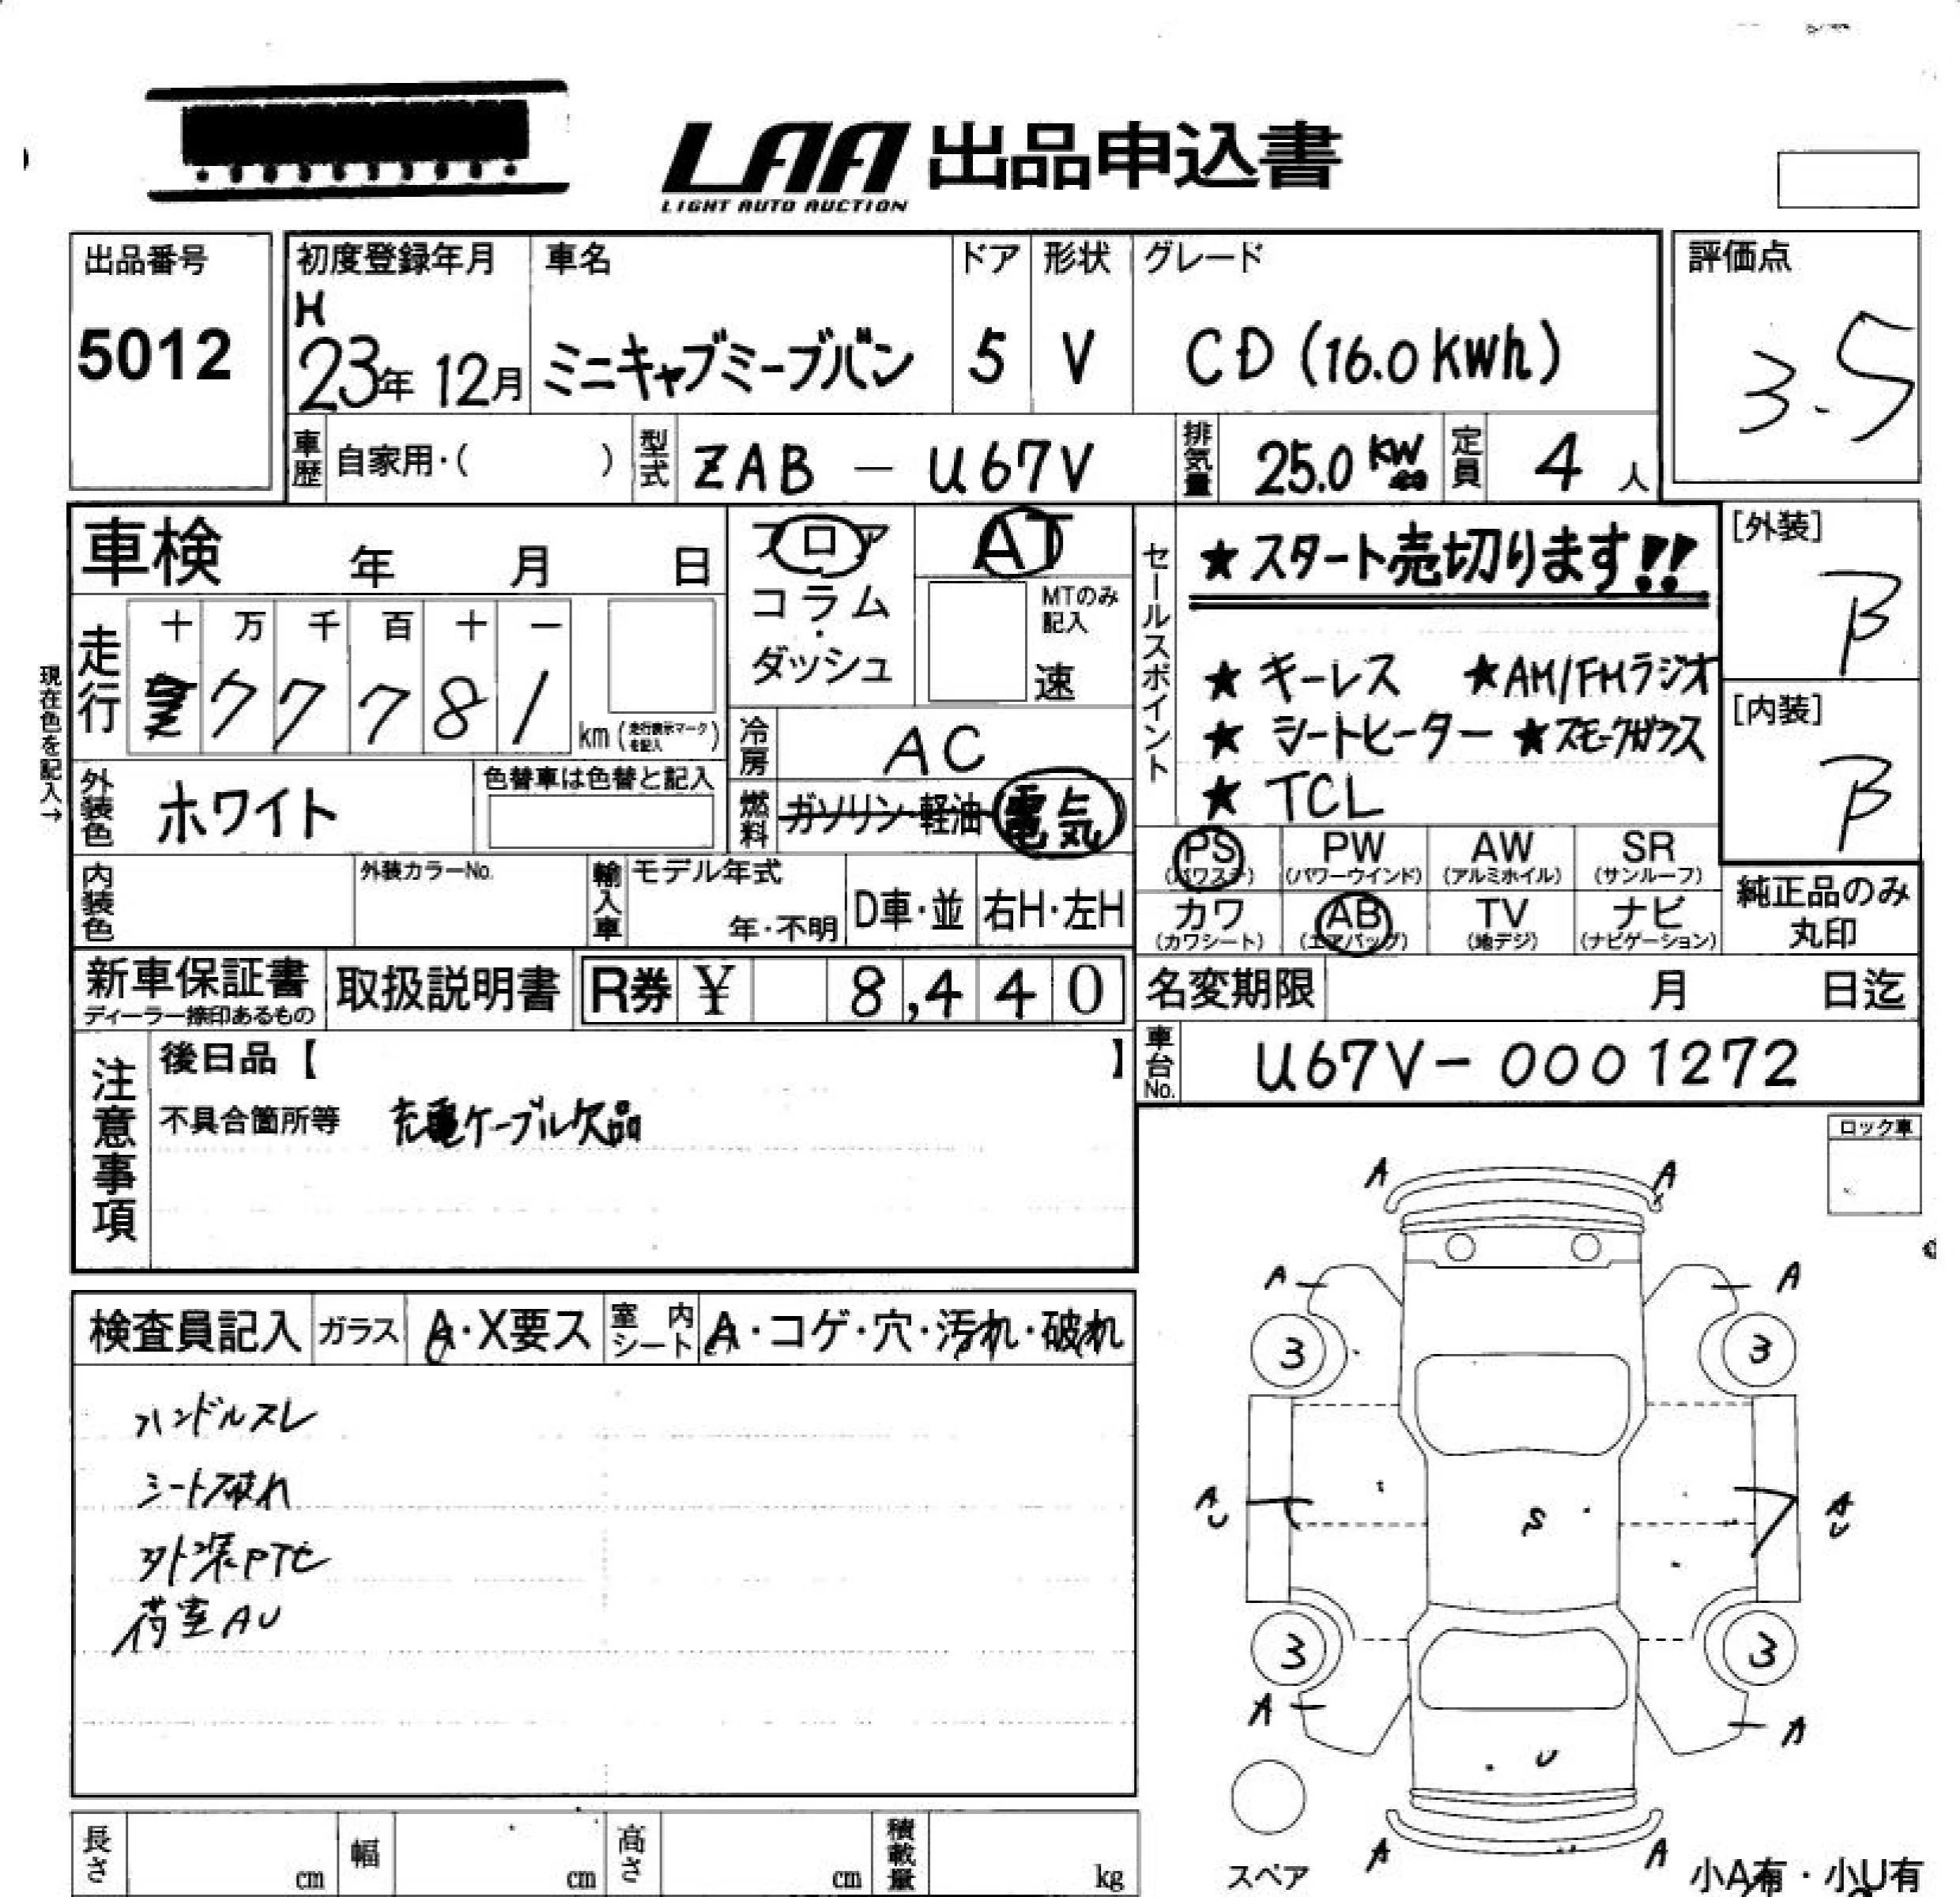 LAA 出品申込書
LIGHT AUTO AUCTION
出品番号
5012
初度登録年月
H
23年 12月
車名
ミニキャブミーブバン
ドア
5
形状
V
グレード
CD (16.0 KWh)
評価点
3.5
車歴
自家用・( )
型式
ZAB - U67V
排気量
25.0 KW
定員
4 人
車検 年 月 日
フロア
コラム
・
ダッシュ
AT
MTのみ
記入
速
走行
十 万 千 百 十 一
7 7 7 8 1
km (走行表示マークを記入)
現在色を記入→
冷房
AC
燃料
ガソリン・軽油・電気
外装色
ホワイト
色替車は色替と記入
内装色
外装カラーNo.
輸入車
モデル年式
年・不明
D車・並
右H・左H
セールスポイント
★スタート売切ります!!
★ キーレス ★AM/FMラジオ
★ シートヒーター ★スモークガラス
★ TCL
[外装]
B
[内装]
B
PS
(パワステ)
PW
(パワーウインド)
AW
(アルミホイル)
SR
(サンルーフ)
カワ
(カワシート)
AB
(エアバッグ)
TV
(地デジ)
ナビ
(ナビゲーション)
純正品のみ
丸印
新車保証書
ディーラー捺印あるもの
取扱説明書
R券 ¥ 8,440
名変期限 月 日迄
車台No.
U67V-0001272
注意事項
後日品【 】
不具合箇所等 充電ケーブル欠品
ロック車
検査員記入
ガラス
A・X要ス
室内シート
A・コゲ・穴・汚れ・破れ
ハンドルスレ
シート破れ
外装PTセ
荷室AU
A A
A A
3 3
AU S AU
3 3
A A
U
A A
スペア
小A有・小U有
長さ cm
幅 cm
高さ cm
積載量 kg